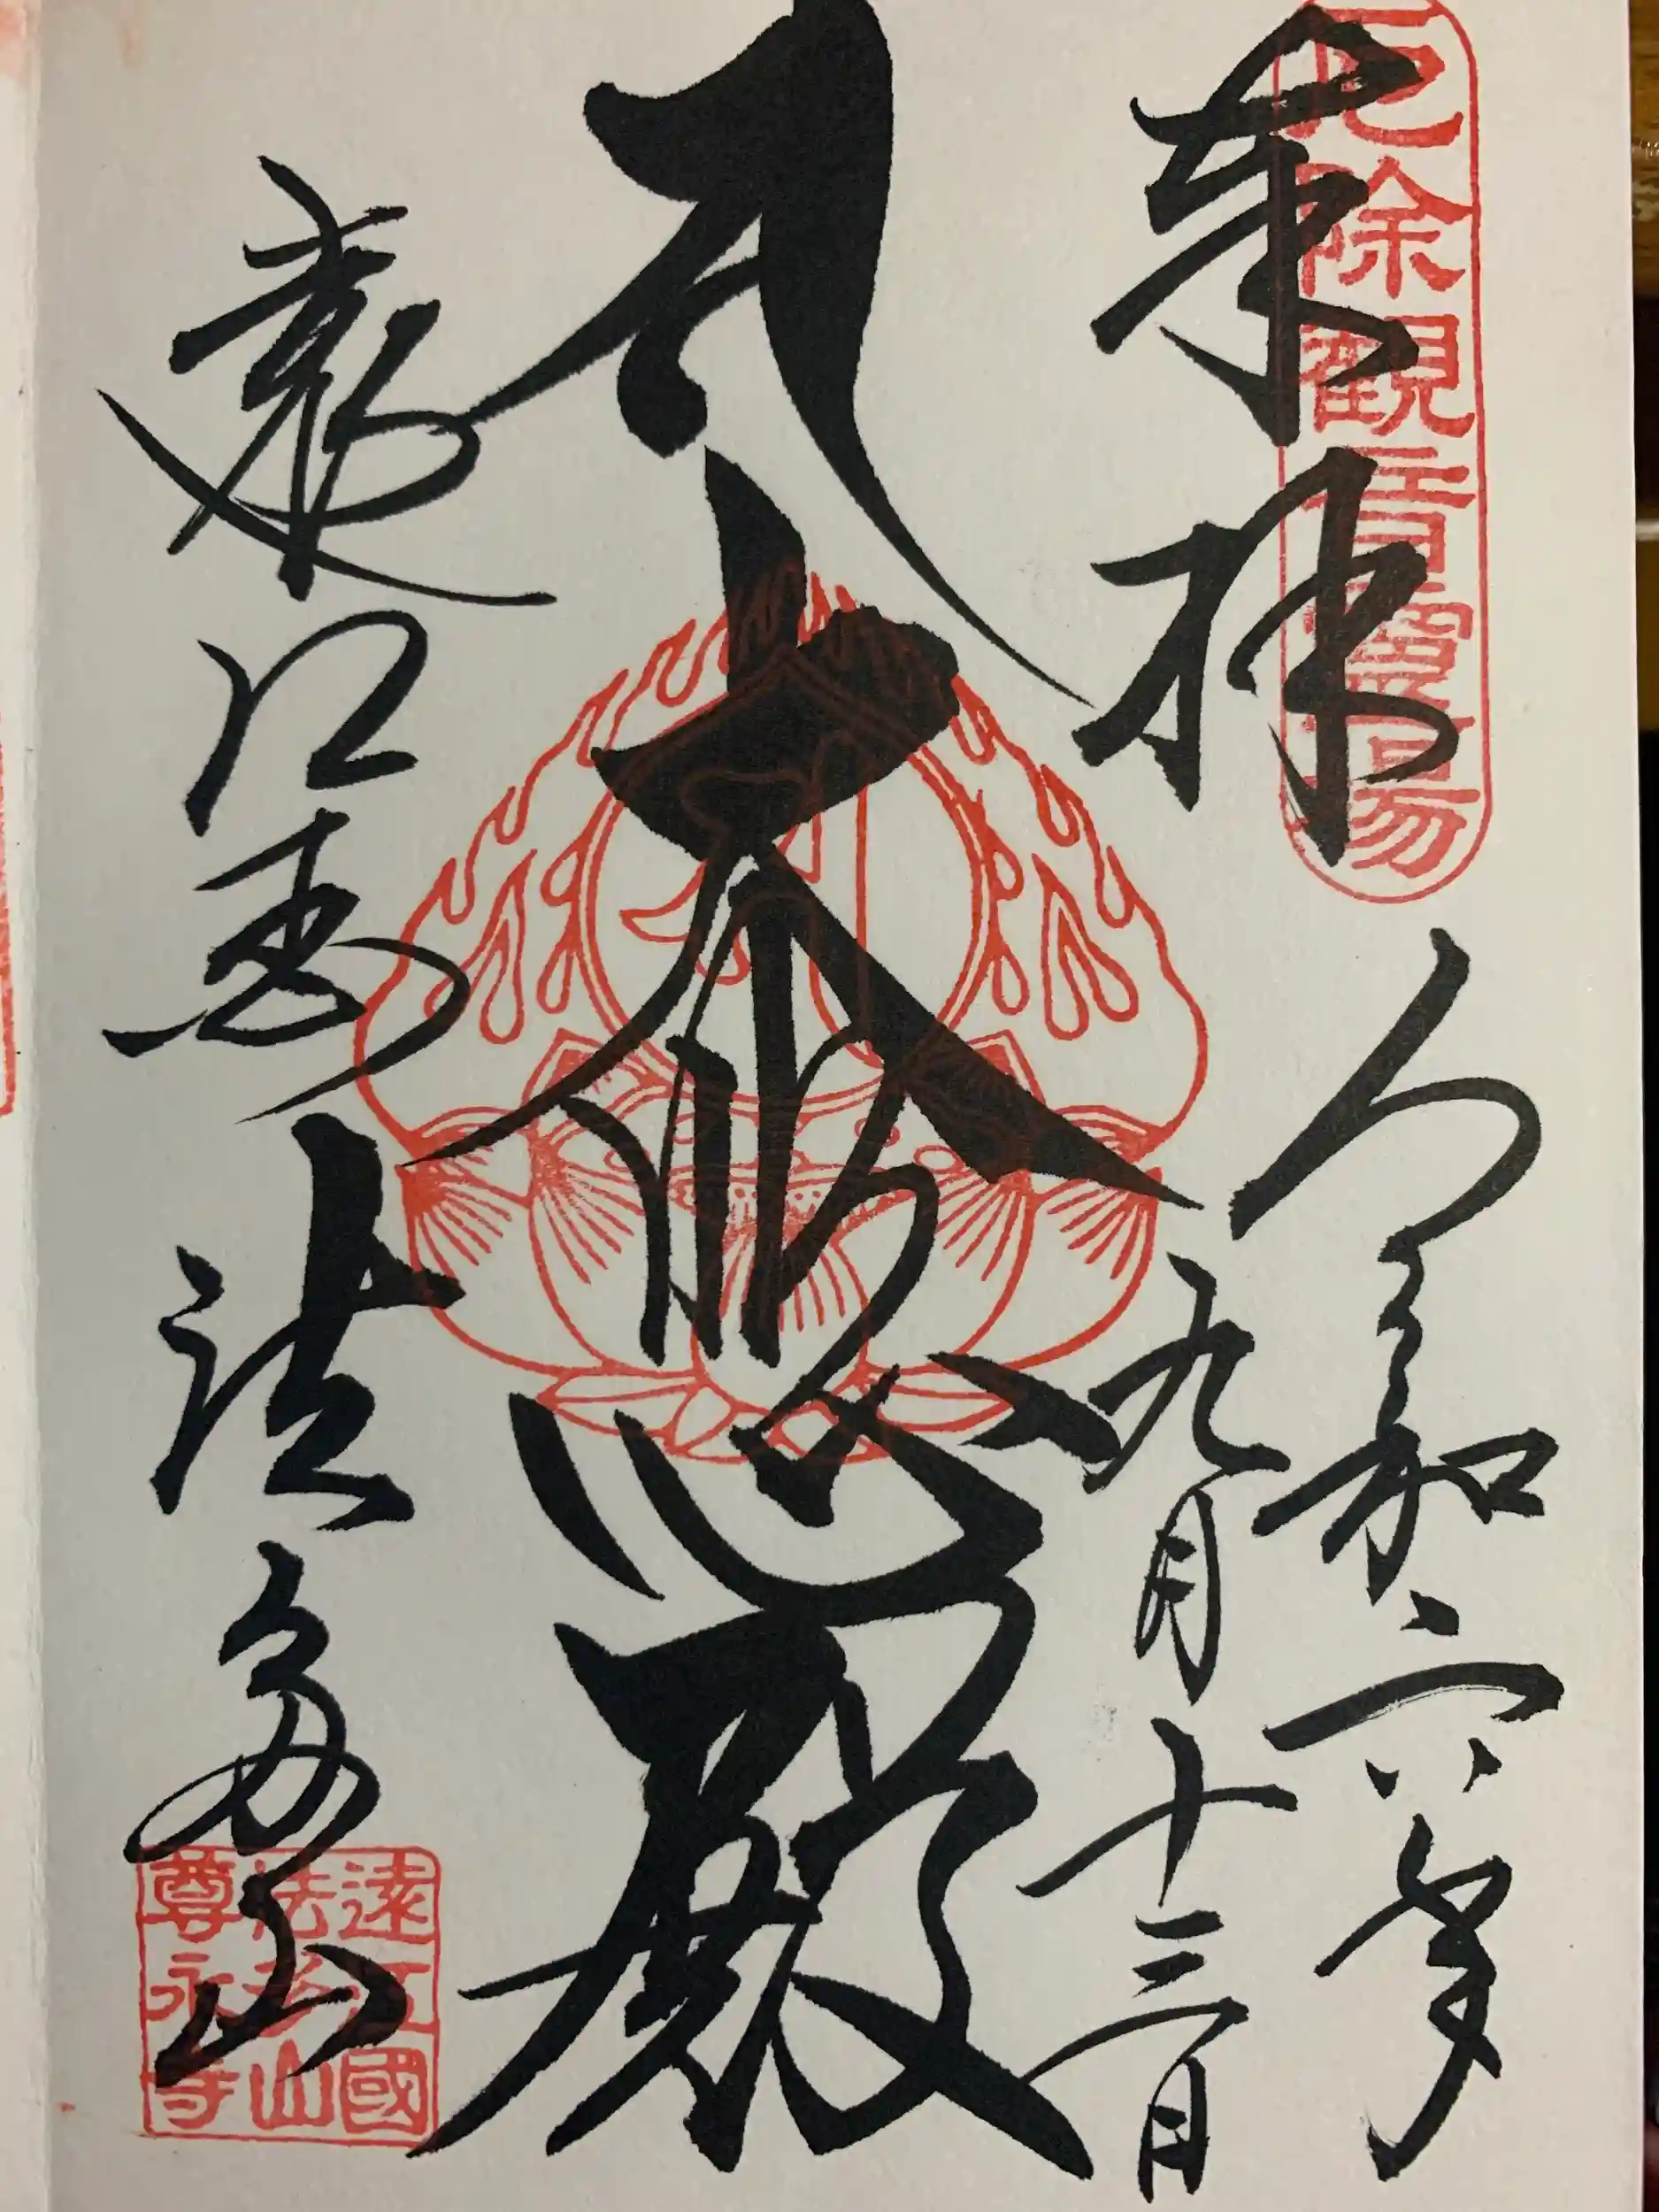 奉拝
厄除観音霊場
令和六年
九月十三日
大悲殿
遠江国
法多山
遠江國
法多山
尊永寺